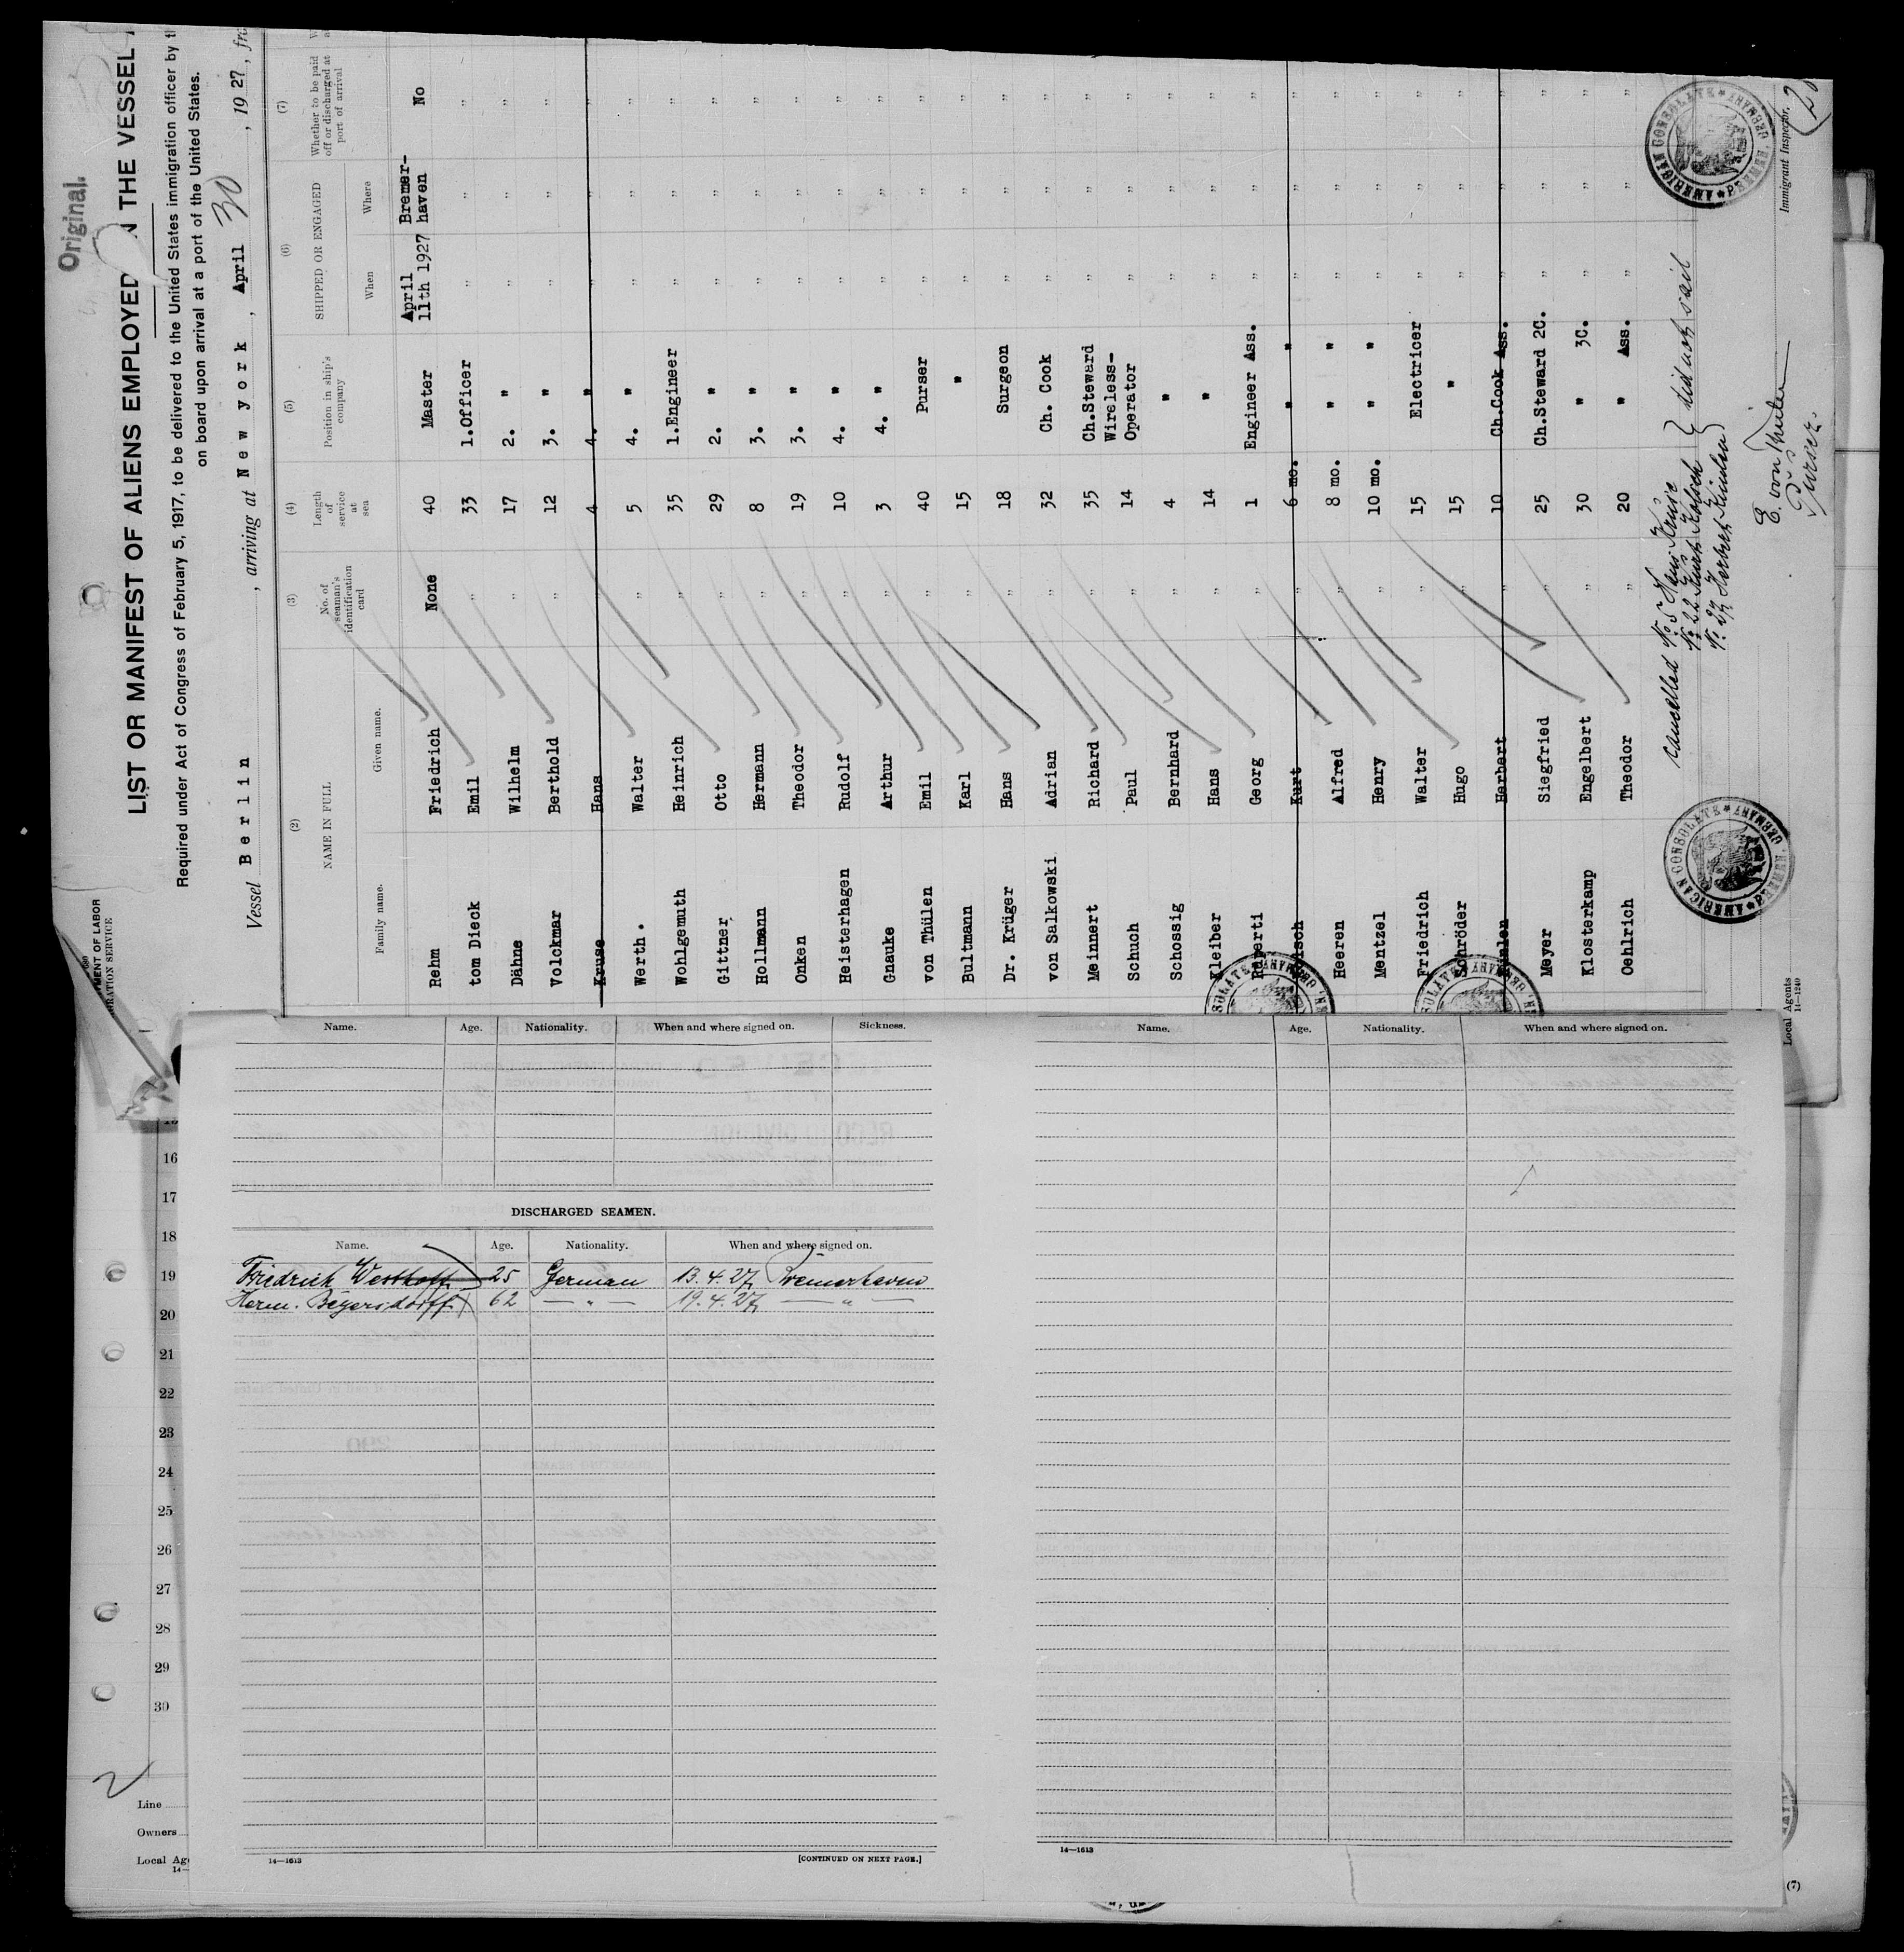 Original.
LIST OR MANIFEST OF ALIENS EMPLOYED ON THE VESSEL
Required under Act of Congress of February 5, 1917, to be delivered to the United States immigration officer by
on board upon arrival at a port of the United States.
Vessel Berlin, arriving at New york, April 30, 1927,
(2) (3) (4) (5) (6) (7)
NAME IN FULL No. of seaman's identification card Length of service at sea Position in ship's company SHIPPED OR ENGAGED Whether to be paid off or discharged at port of arrival
Family name. Given name. When Where
Rehm Friedrich None 40 Master April 11th 1927 Bremer-haven No
tom Dieck Emil „ 33 1.Officer „ „ „
Dähne Wilhelm „ 17 2. " „ „ „
Volckmar Berthold „ 12 3. " „ „ „
Kruse Hans „ 4 4. " „ „ „
Werth. Walter „ 5 4. " „ „ „
Wohlgemuth Heinrich „ 35 1.Engineer „ „ „
Gittner Otto „ 29 2. " „ „ „
Hollmann Hermann „ 8 3. " „ „ „
Onken Theodor „ 19 3. " „ „ „
Heisterhagen Rudolf „ 10 4. " „ „ „
Gnauke Arthur „ 3 4. " „ „ „
von Thülen Emil „ 40 Purser „ „ „
Bultmann Karl „ 15 " „ „ „
Dr. Krüger Hans „ 18 Surgeon „ „ „
von Salkowski Adrian „ 32 Ch. Cook „ „ „
Meinnert Richard „ 35 Ch.Steward „ „ „
Schuch Paul „ 14 Wireless-Operator „ „ „
Schossig Bernhard „ 4 " „ „ „
Kleiber Hans „ 14 " „ „ „
Ruperti Georg „ 1 Engineer Ass. „ „ „
Kurt „ 6 mo. " " „ „ „
Heeren Alfred „ 8 mo. " " „ „ „
Mentzel Henry „ 10 mo. " " „ „ „
Friedrich Walter „ 15 Electricer „ „ „
Schröder Hugo „ 15 " „ „ „
Herbert „ 10 Ch.Cook Ass. „ „ „
Meyer Siegfried „ 25 Ch.Steward 2C. „ „ „
Klosterkamp Engelbert „ 30 " 3C. „ „ „
Oehlrich Theodor „ 20 " Ass. „ „ „
cancelled No. 5 Hans Kruse
No. 22 Kurt
No. 27 Herbert
did not sail
E. von Thülen
Purser.
AMERICAN CONSULATE
BREMEN, GERMANY
AMERICAN CONSULATE
BREMEN, GERMANY
Immigrant Inspector.
Local Agents
14—1240
Name. Age. Nationality. When and where signed on. Sickness.
DISCHARGED SEAMEN.
Name. Age. Nationality. When and where signed on.
Friedrich Westhoff 25 German 13.4.27 Bremerhaven
Herm. Beyersdorff 62 — " — 19.4.27 — " —
14—1613
[CONTINUED ON NEXT PAGE.]
Name. Age. Nationality. When and where signed on.
14—1613
16
17
18
19
20
21
22
23
24
25
26
27
28
29
30
2
Line
Owners
Local
(7)